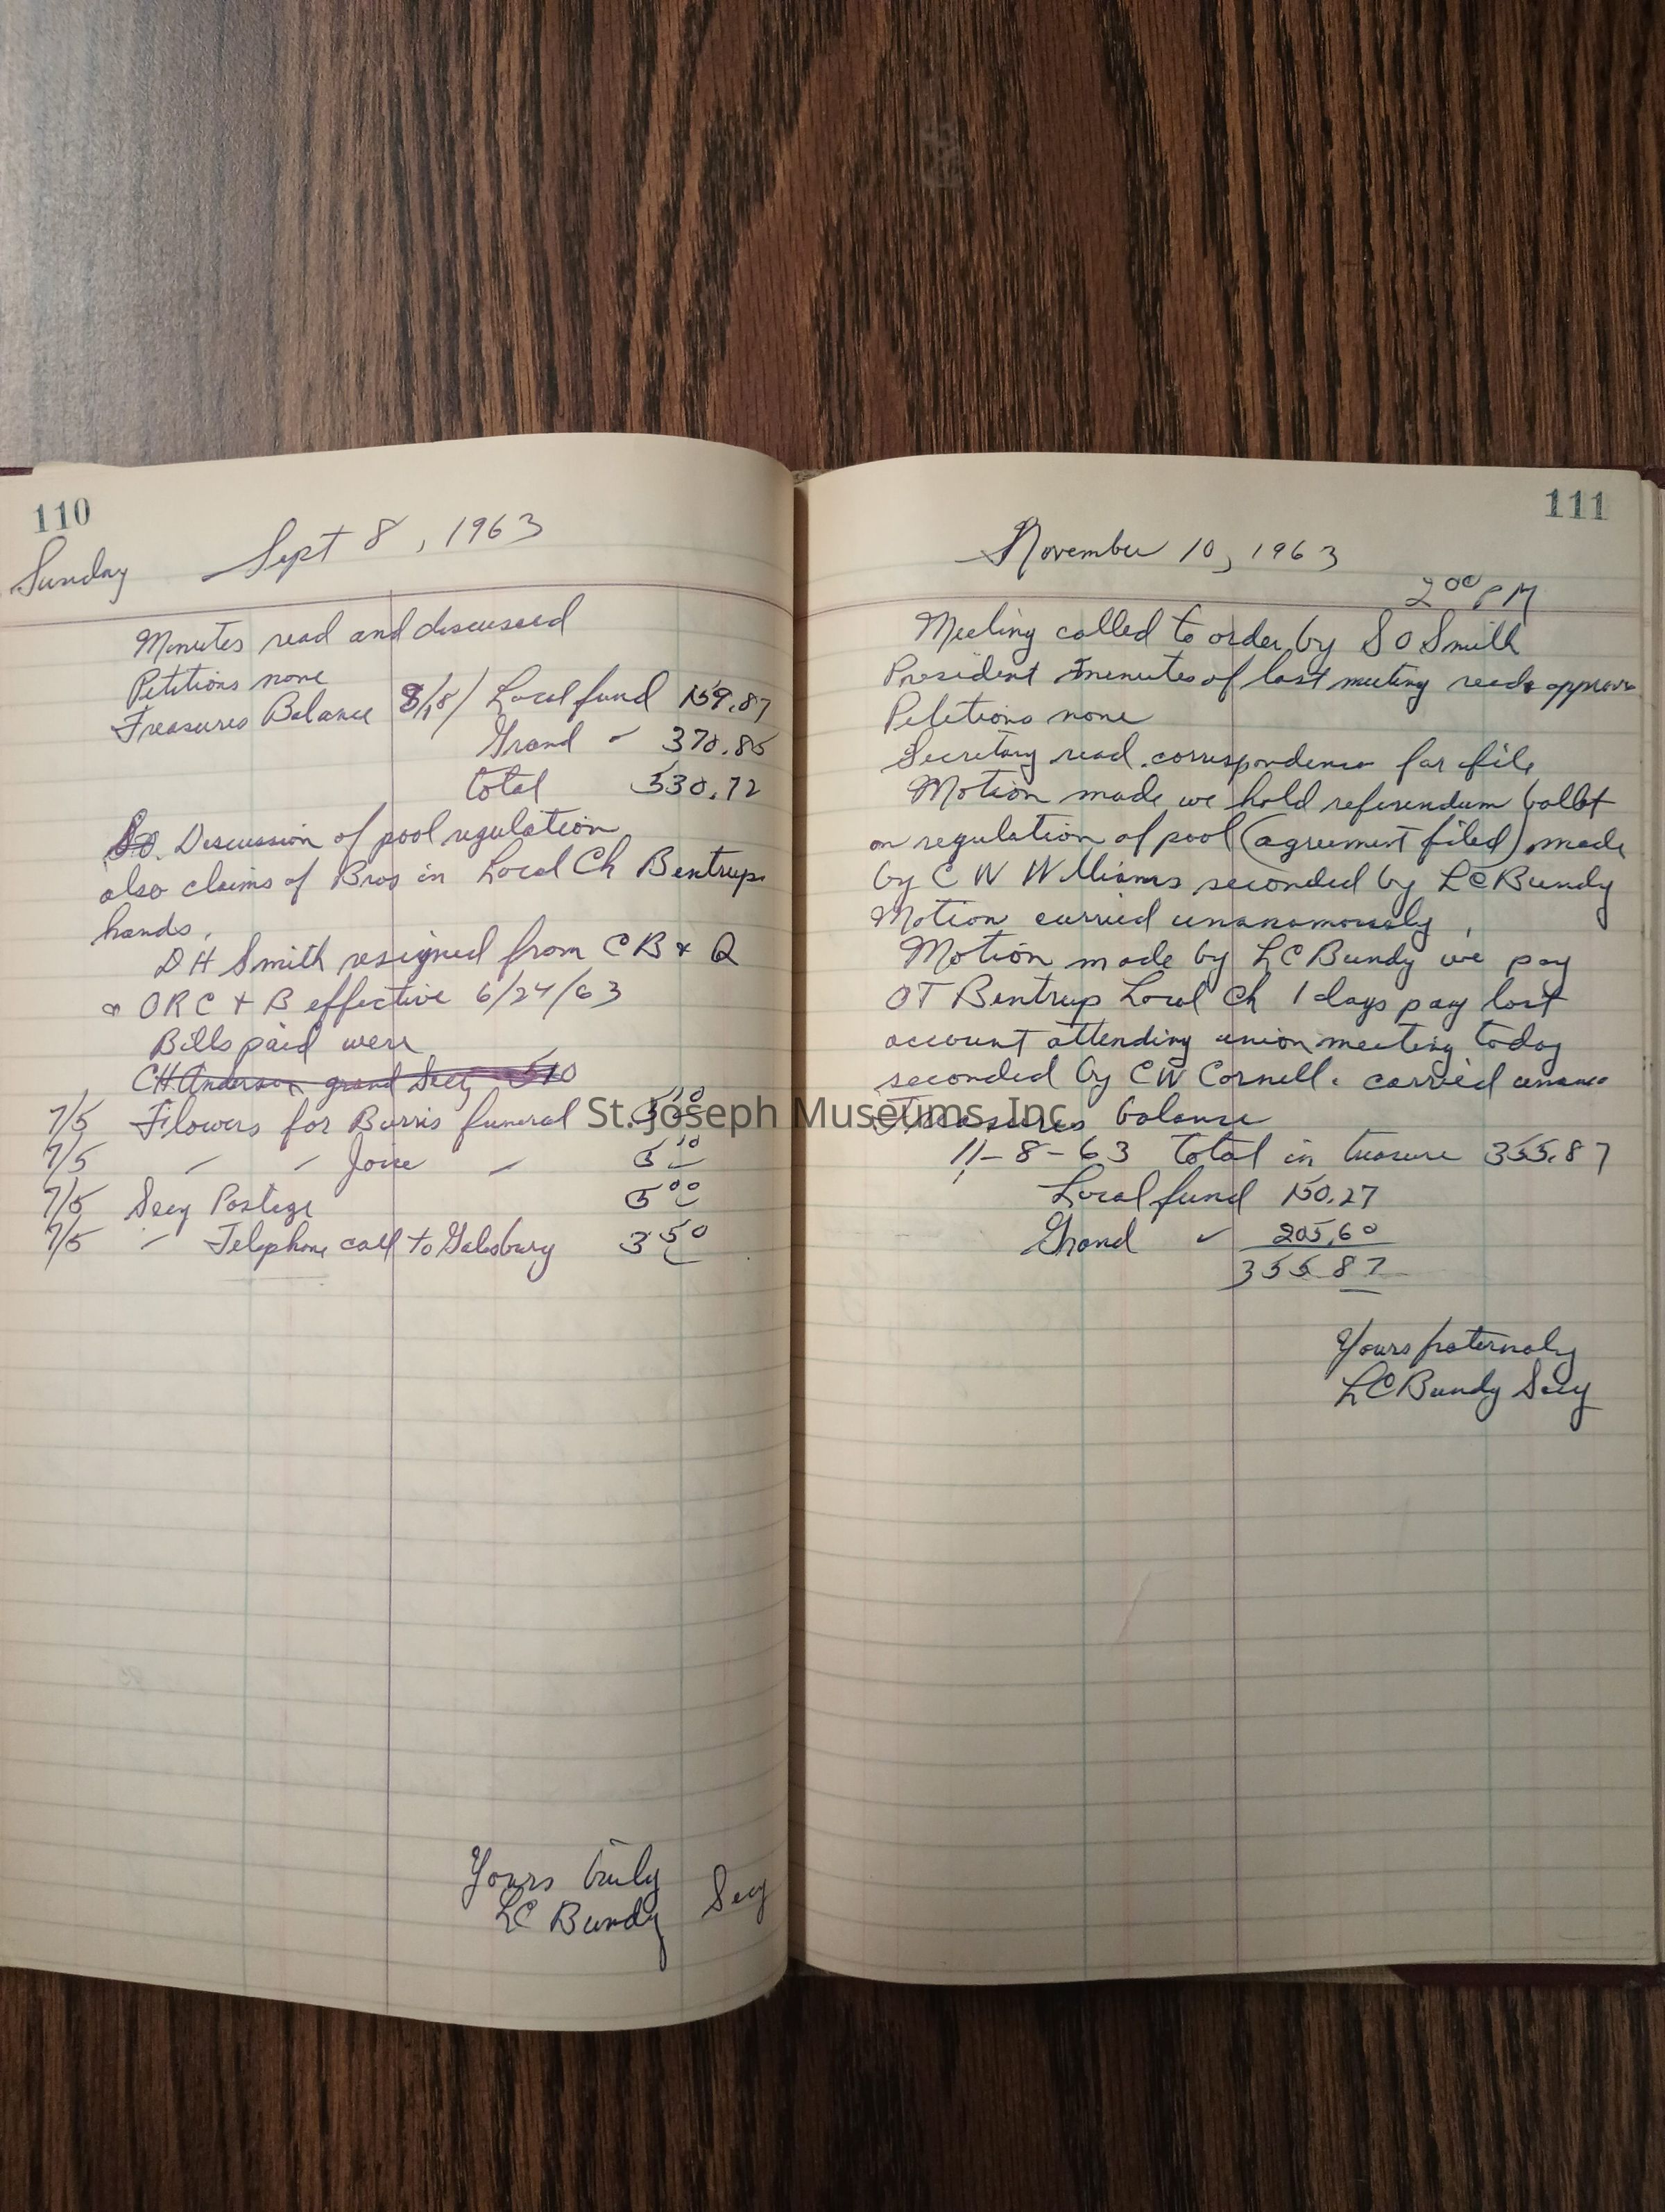 110
Sunday Sept 8, 1963
Minutes read and discussed
Petitions none
Treasures Balance 8/18/ Local fund 159.87
Grand " 370.85
total 530.72
Discussion of pool regulation
also claims of Bros in Local Ch Bentrups
hands.
D H Smith resigned from C B & Q
& ORC & B effective 6/24/63
Bills paid were
CH Anderson grand Secty 510
7/5 Flowers for Burris funeral 5 10
7/5 " " Jone " 5 10
7/5 Secy Postage 5 00
7/5 " Telephone call to Galesburg 3 50
Yours truly
LC Bundy Secy
111
November 10, 1963
2 00 PM
Meeting called to order by S O Smith
President minutes of last meeting read approve
Petitions none
Secretary read correspondence for file
Motion made we hold referendum ballot
on regulation of pool (agreement filed) made
by C W Williams seconded by LC Bundy
Motion carried unanamously.
Motion made by LC Bundy we pay
OT Bentrup Local Ch 1 days pay lost
account attending union meeting today
seconded by CW Cornell. carried
Treasures balance
11-8-63 total in treasure 355.87
Local fund 150.27
Grand " 205.60
355 87
Yours fraternaly
LC Bundy Secy
St. Joseph Museums, Inc.